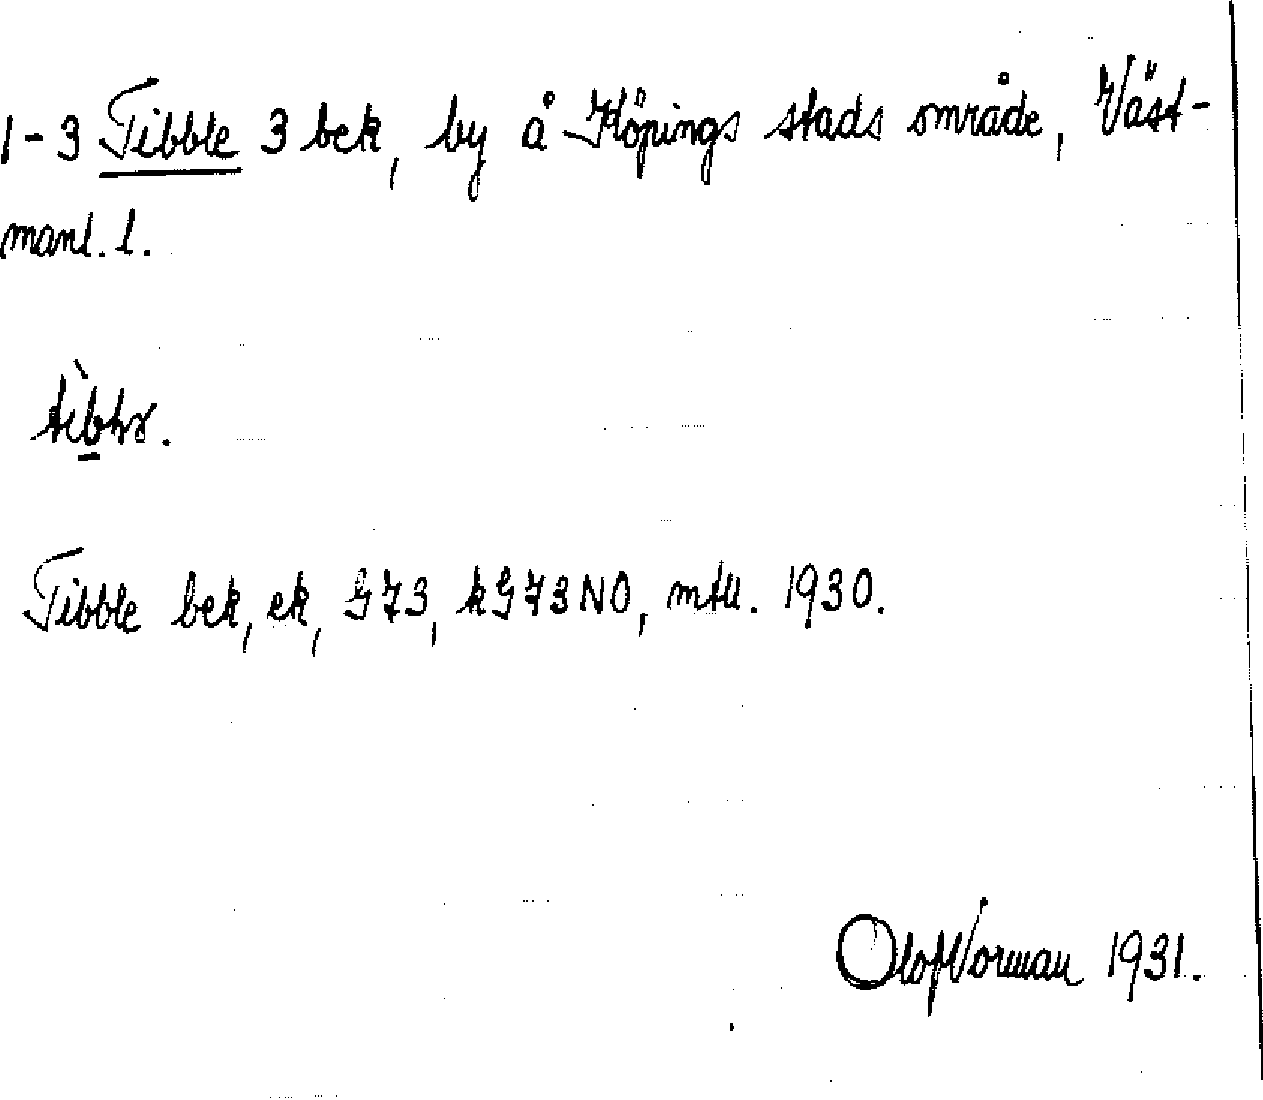 1-3 Tibble 3 bek, by å Köpings stads område, Väst-
manl. l.
Tibble bek, ek, GJ3, kGJ3NO, mtll. 1930.
Olof Norman 1931.